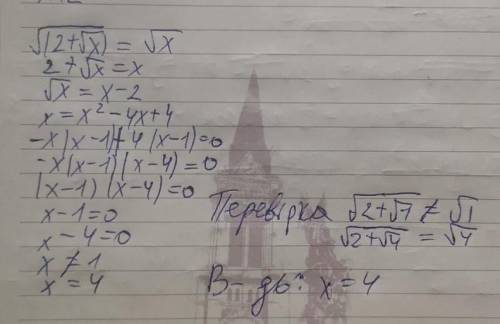 √(2+√x) = √x
2+√x = x
√x = x-2
x = x²-4x+4
-x(x-1)+4(x-1)=0
-x(x-1)(x-4)=0
(x-1)(x-4)=0
x-1=0
x-4=0
x≠1
x=4
Перевірка √2+√1 ≠ √1
√2+√4 = √4
В-дь: x=4